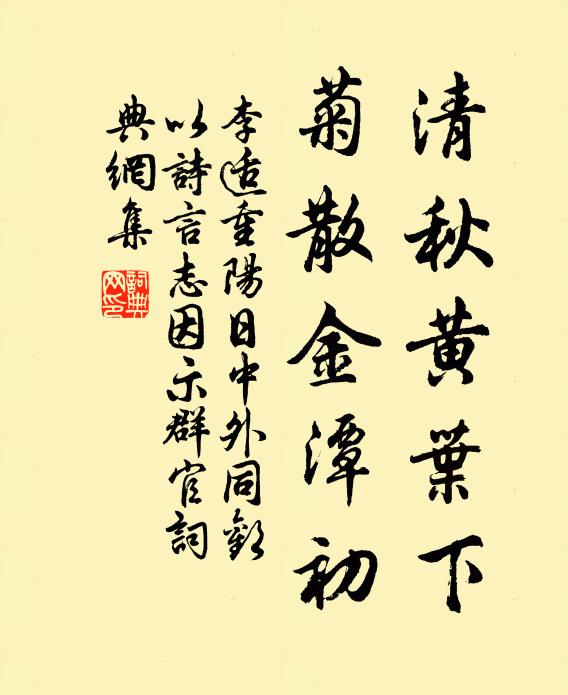 清秋黃葉下
菊散金潭初
李适重陽日中外同歡
以詩言志因示群官詞
典網集
詞典
网印